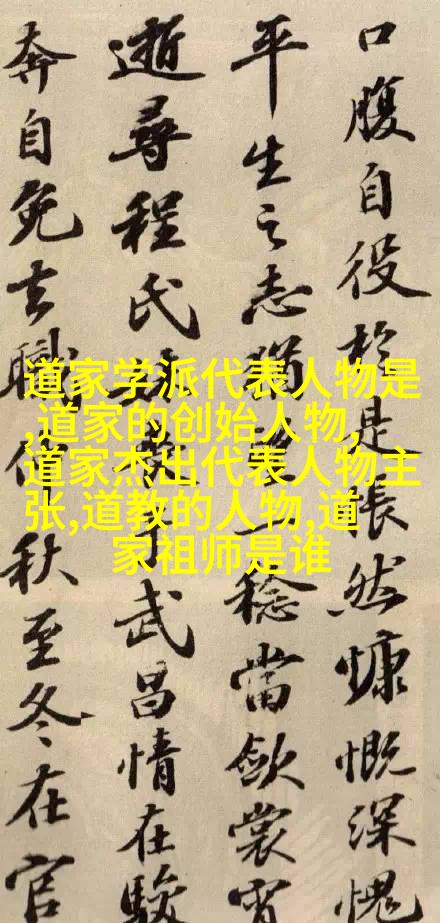 口腹自役於是悵然慷慨深愧
平生之志猶望一稔當斂裳宵
逝尋程氏妹喪于武昌情在駿
奔自免去職仲秋至冬在官
道家学派代表人物是
,道家的创始人物,
道家杰出代表人物主
张,道教的人物,道
家祖师是谁